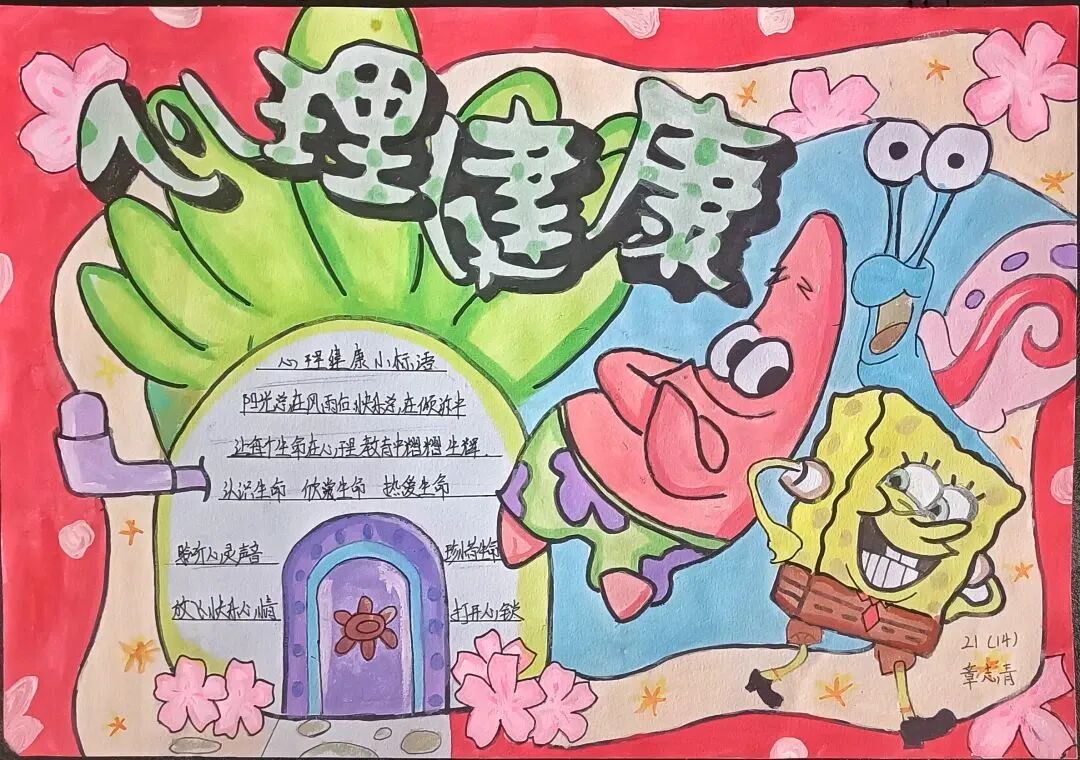 心理健康
心理健康小标语
阳光总在风雨后 快乐总在倾诉中
让每个生命在心理教育中熠熠生辉.
认识生命 欣赏生命 热爱生命
聆听心灵声音 珍惜生命
放飞快乐心情 打开心锁
21(14)
章志青